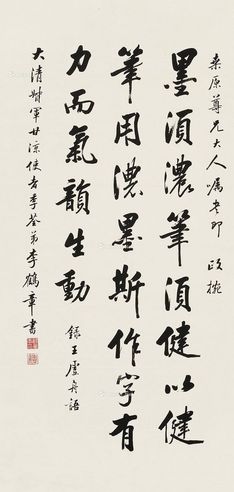 原尊兄大人嘱書即 政
墨須濃筆須健以健
筆用濃墨斯作字有
力而氣韻生動
錄王虛舟語
大清軍甘涼使者李弟李鶴章書